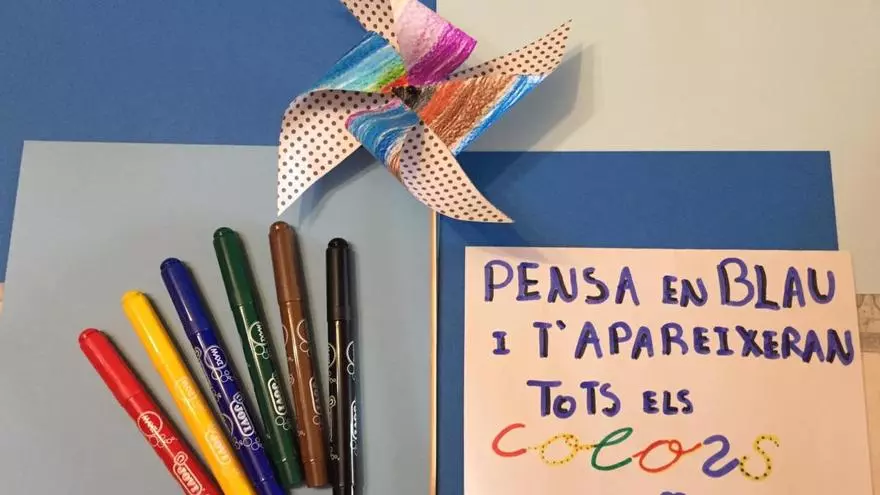 PENSA EN BLAU
I T'APAREIXERAN
TOTS ELS
COLORS
JOVI
JOVI
JOVI
JOVI